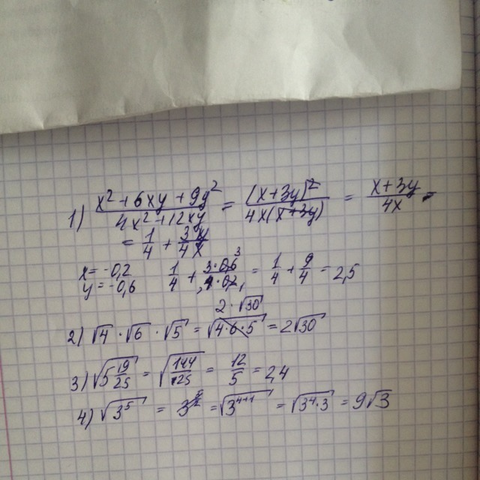 1) (x² + 6xy + 9y²)/(4x² + 12xy) = (x+3y)²/(4x(x+3y)) = (x+3y)/(4x) =
= 1/4 + 3y/4x
x = -0,2
y = -0,6
1/4 + (3·0,6)/(4·0,2) = 1/4 + 9/4 = 2,5
2) √4 · √6 · √5 = √(4·6·5) = 2√30
2·√30
3) √(5 19/25) = √(144/25) = 12/5 = 2,4
4) √(3⁵) = √(3⁴⁺¹) = √(3⁴·3) = 9√3